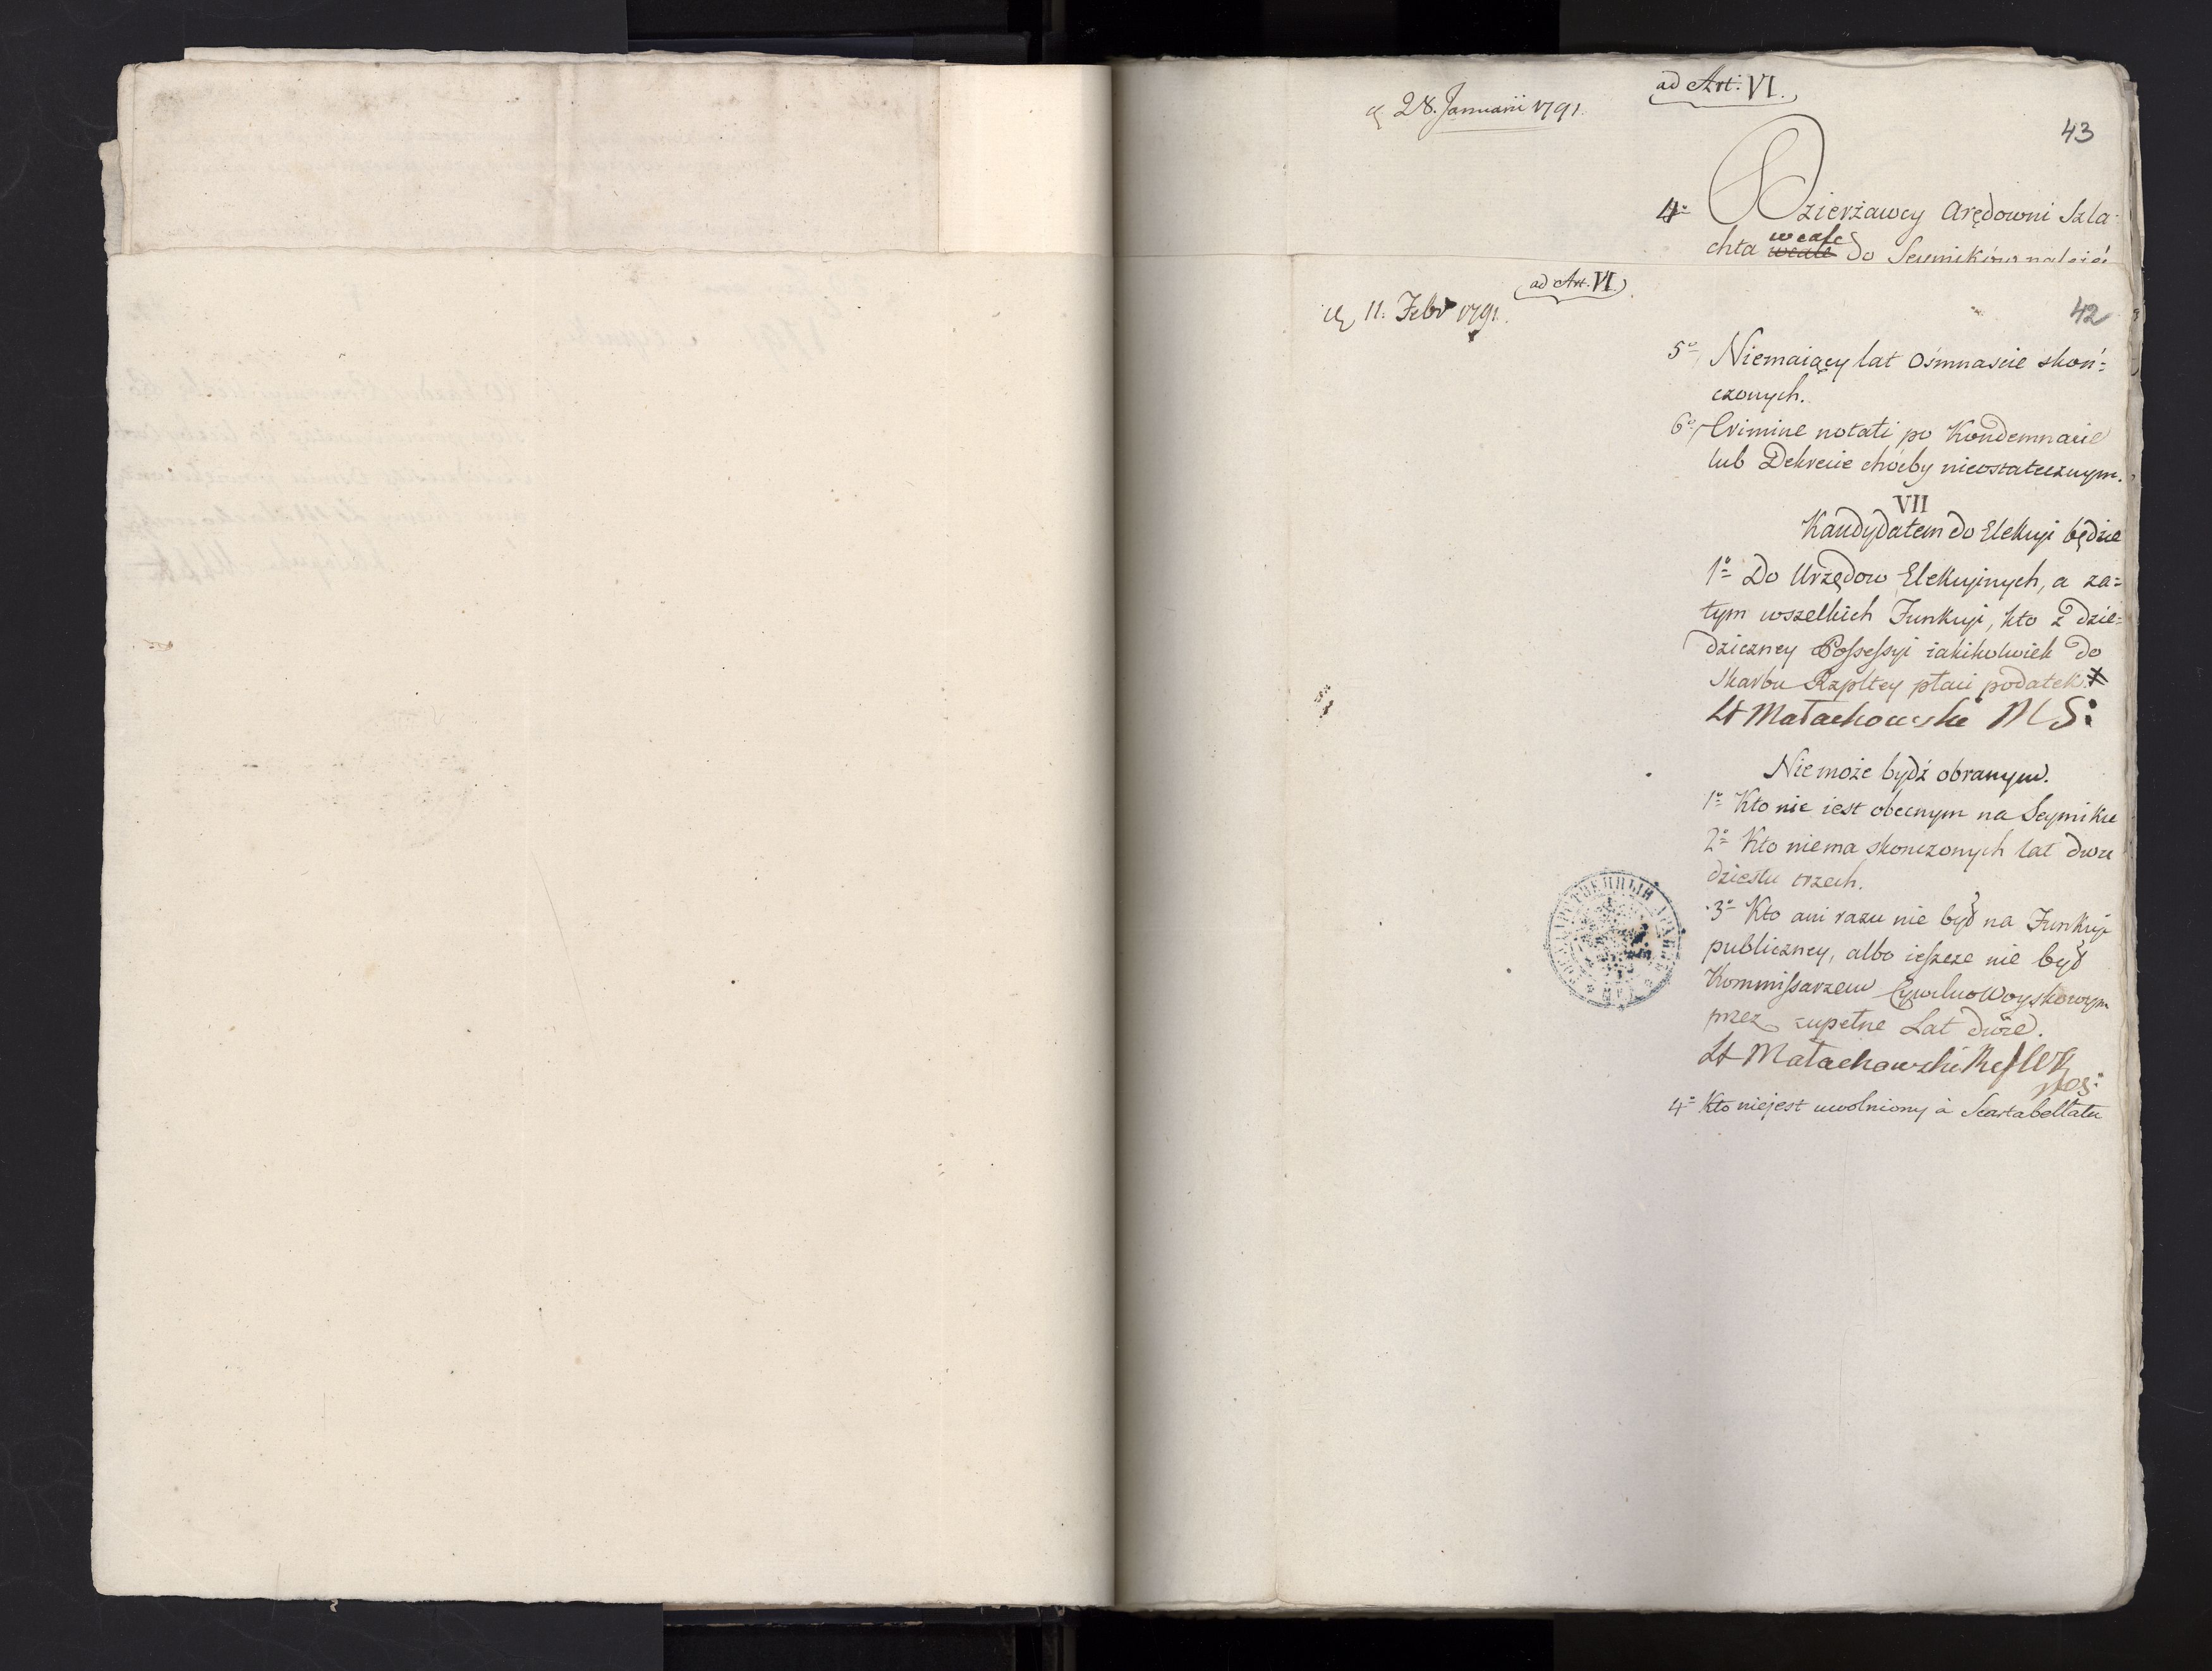 ad Art: VI.
28. Januarii 1791.
43
4º Dzierżawcy Arędowni Szla-
chta wcale wcale do Seymików należéć
ad Art. VI.
11. Febr 1791.
42
5º Niemaiący lat Ośmnaście skoń=
czonych.
6º Crimine notati po Kondemnacie
lub Dekrecie choćby nieostatecznym.
VII
Kandydatem do Elekcyi będzie
1º Do Urzędow Elekcyinych, a za=
tym wszelkich Funkcyi, kto z dzie=
dziczney Possessyi iakikolwiek do
Skarbu Rzpltey płaci podatek.
St Małachowski MS:
Nie może bydź obranym.
1º Kto nie iest obecnym na Seymiku
2º Kto niema skonczonych lat dwu
dziestu trzech.
3º Kto ani razu nie był na Funkcyi
publiczney, albo ieszcze nie był
Kommissarzem Cywilno Woyskowym
przez zupełne Lat dwie.
St Małachowski
4º Kto niejest uwolniony à Scartabellatu